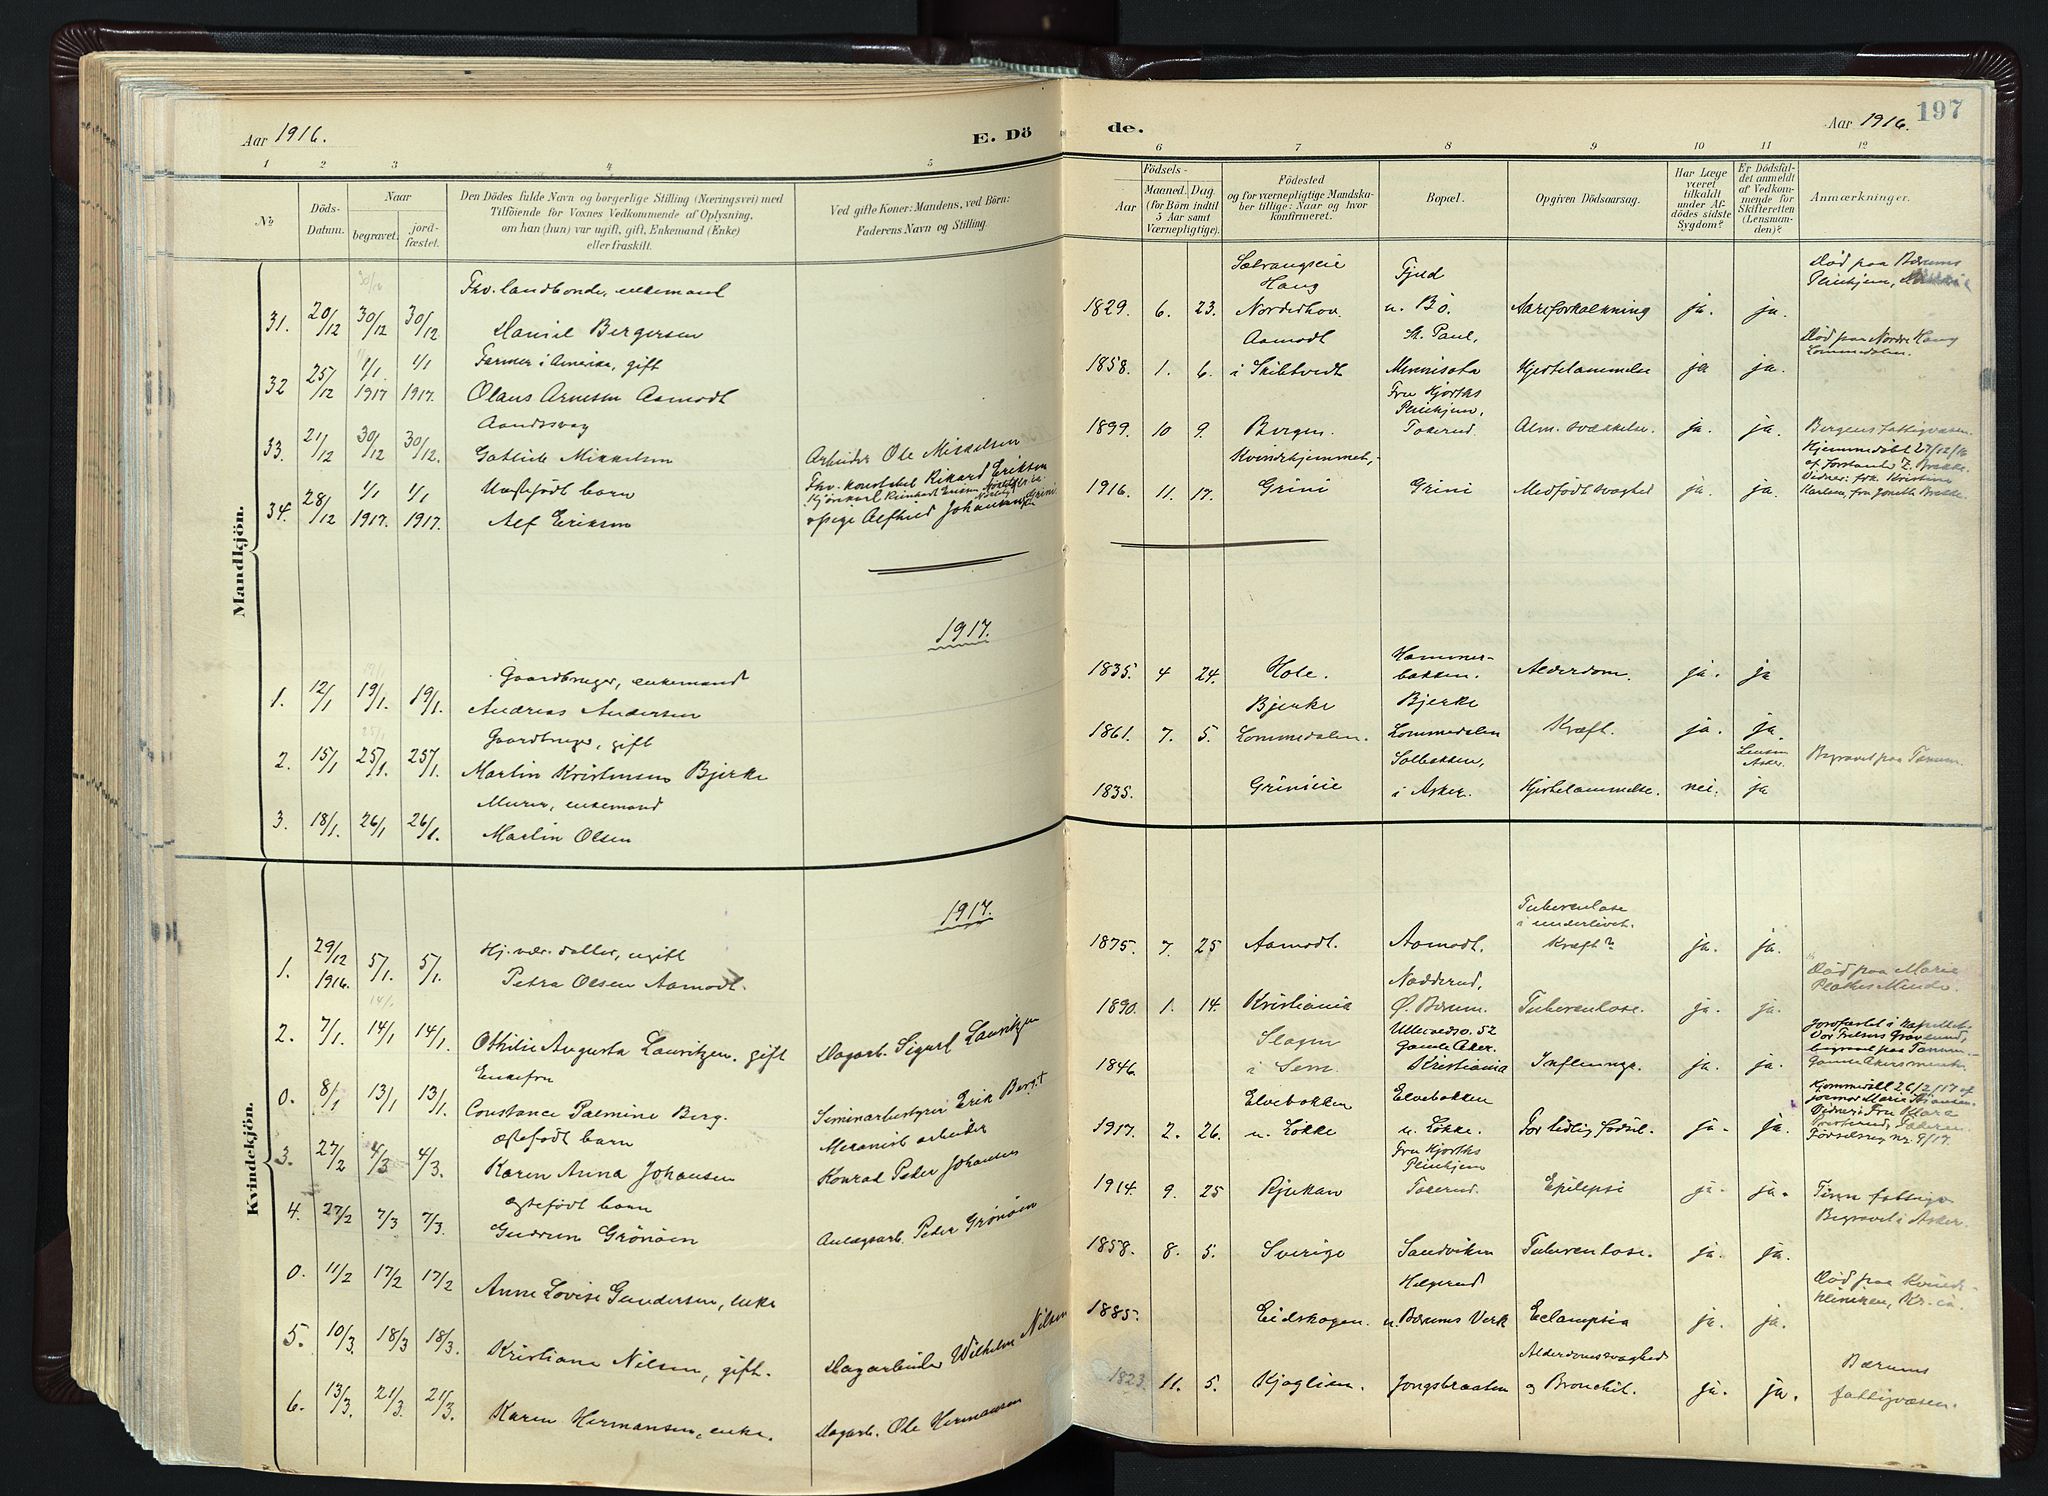 Aar 1916.
E. Dö
de.
Aar 1916.
197
1 2 3 4 5
6 7 8 9 10 11 12
No
Döds-
Datum.
Naar
begravet.
jord-
fæstet.
Den Dödes fulde Navn og borgerlige Stilling (Næringsvei) med
Tilföiende for Voxnes Vedkommende af Oplysning,
om han (hun) var ugift, gift, Enkemand (Enke)
eller fraskilt.
Ved gifte Koner: Mandens, ved Börn:
Faderens Navn og Stilling.
Födsels-
Aar
Maaned. Dag.
(for Börn indtil
5 Aar samt
Værnepligtige).
Födested
og for værnepligtige Mandska-
ber tillige: Naar og hvor
konfirmeret.
Bopæl.
Opgiven Dödsaarsag.
Har Læge
været
tilkaldt
under Af-
dödes sidste
Sygdom?
Er Dödsfal-
det anmeldt
af Vedkom-
mende for
Skifteretten
(Lensman-
den)?
Anmærkninger.
Mandkjön.
31. 20/12 30/12 30/12
Fhv. landbonde, enkemand
Daniel Bergersen
1829. 6. 23.
Haug
Norderhov
Tjud
u. Bö.
Aareforkalkning
ja. ja.
Död paa Bærums
Pleiehjem,
32 25/12 1/1 1917 1/1 1917.
Farmer i Amerika, gift
Olaus Arnesen Aamodt
1858. 1. 6.
Aamodt
i Skibtvedt
St. Paul,
Minnisota
Hjertelammelse
ja ja.
Död paa Nordre Haug
Lommedalen.
33. 21/12 30/12 30/12.
Aandssvag
Gotlieb Mikkelsen
Arbeider Ole Mikkelsen
1899. 10 9.
Bergen.
Fru Hjorths
Pleiehjem,
Tokerud.
Alm. svækkelse.
ja. ja.
Bergens fattigvæsen.
34. 28/12 1/1 1917. 1/1 1917.
Uægtefödt barn
Alf Eriksen
Fhv. konstabel Rikard Eriksen
pige Alfhild Johansen, Grini
1916. 11. 17.
Kvindehjemmet,
Grini
Grini
Medfödt svaghed
ja. ja.
Hjemmedöbt 27/12/16
af Forstander Z. Brekke.
Vidner: frk. Kristine
Karlsen, fru Joneth Brekke.
1917.
1. 12/1 19/1. 19/1.
Gaardbruger, enkemand
Andreas Andersen
1835. 4 24.
Hole.
Hammer-
bakken.
Alderdom.
ja. ja
2. 15/1 25/1. 25/1.
Gaardbruger, gift
Martin Kristensen Bjerke
1861. 7. 5.
Bjerke
Lommedalen.
Bjerke
Lommedalen
Kræft.
ja. ja.
3. 18/1. 26/1 26/1.
Murer, enkemand
Martin Olsen
1835.
Grinieie
Solbakken,
i Asker.
Hjertelammelse.
nei.
Lensm.
Asker.
ja
Begravet paa Tanum.
Kvindekjön.
1917.
1. 29/12 1916. 5/1. 5/1.
Hj. vær. datter, ugift
Petra Olsen Aamodt.
1875. 7. 25
Aamodt.
Aamodt.
Tuberculose
i underlivet.
Kræft?
ja. ja.
2. 7/1. 14/1 14/1.
Othilie Augusta Lauritzen. gift
Dagarb. Sigurd Lauritzen
1890. 1. 14.
Kristiania
Nadderud,
Ø. Bærum.
Tuberculose.
ja. ja.
Död paa Marie
Plathes Minde.
0. 8/1 13/1 13/1.
Enkefru
Constance Palmine Berg.
Seminarbestyrer Erik Berg.†
1846.
Slagen
i Sem.
Ullevoldsv. 52
Gamle Aker.
Kristiania
Influenza.
ja. ja.
Jordfæstet i Kapellet
Vor Frelsers Gravlund,
begravet paa Tanum.
3. 27/2 4/3 4/3.
Ægtefödt barn
Karen Anna Johansen
Mekanisk arbeider
Konrad Peder Johansen
1917. 2. 26.
Elvebakken
u. Løkke
Elvebakken
u. Løkke.
For tidlig fødsel.
ja. ja.
Hjemmedöbt 26/2/17 af
Fødselsreg nr. 9/17.
4. 27/2 7/3 7/3.
Ægtefödt barn
Gudrun Grönöien
Anlægsarb. Peder Grönöien
1914. 9. 25
Rjukan
Fru Hjorths
Pleiehjem
Tokerud.
Epilepsi
ja. ja.
Tinn fattigv.
0. 11/2 17/2 17/2
Anne Lovise Gundersen, enke
1858. 8. 5.
Sverige
Sandviken
Tuberculose.
ja. ja.
Begravet i Asker.
5. 10/3 18/3 18/3.
Kristiane Nilsen, gift.
Dagarbeider Wilhelm Nilsen
1885.
Eidskogen.
Helgerud
u. Bærums Verk
Eclampsia
ja. ja.
Död paa Kvinde-
kliniken, Kr.ia.
6. 13/3. 21/3. 21/3.
Karen Hermansen, enke.
Dagarb. Ole Hermansen
1823. 11. 5.
Kjaglien.
Jongsbraaten
Alderdomssvaghed
og Bronchit.
ja. ja.
Bærums
fattigvæsen.